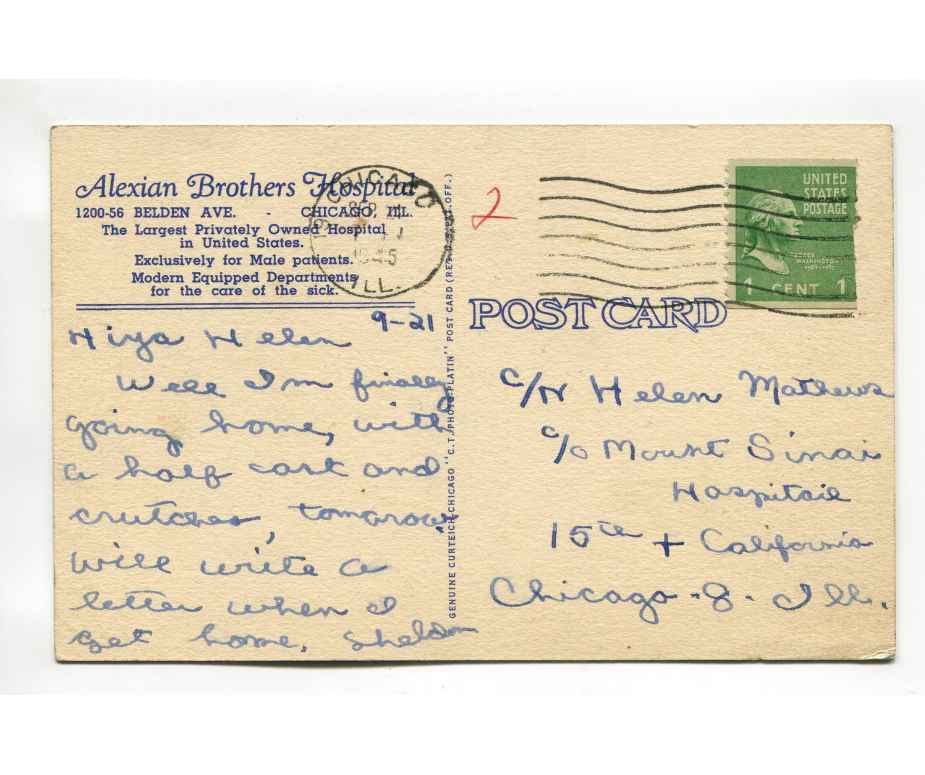 Alexian Brothers Hospital
1200-56 BELDEN AVE. - CHICAGO, ILL.
The Largest Privately Owned Hospital
in United States.
Exclusively for Male patients.
Modern Equipped Departments
for the care of the sick.
9-21
Hiya Helen
Well I'm finally
going home, with
a half cast and
crutches, tomorrow.
Will write a
letter when I
get home. Sheldon
GENUINE CURTEICH-CHICAGO "C.T. PHOTO-PLATIN" POST CARD (REG. U.S. PAT. OFF.)
CHICAGO
SEP
1945
ILL.
2
UNITED
STATES
POSTAGE
WASHINGTON
1 CENT 1
POST CARD
c/N Helen Mathews
c/o Mount Sinai
Hospitail
15th + California
Chicago - 8 - Ill.